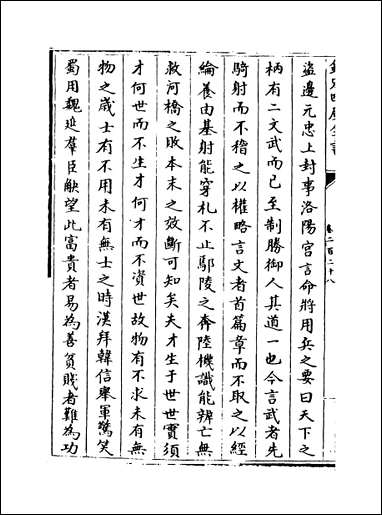 欽定四庫全書
卷二百二十八
盜邊元忠上封事洛陽宮言命將用兵之要曰天下之
柄有二文武而已至制勝御人其道一也今言武者先
騎射而不稽之以權略言文者首篇章而不取之以經
綸養由基射能穿札不止鄢陵之奔陸機識能辨亡無
救河橋之敗本末之效斷可知矣夫才生于世世實須
才何世而不生才何才而不資世故物有不求未有無
物之歲士有不用未有無士之時漢拜韓信舉軍驚笑
蜀用魏延羣臣觖望此富貴者易為善貧賤者難為功